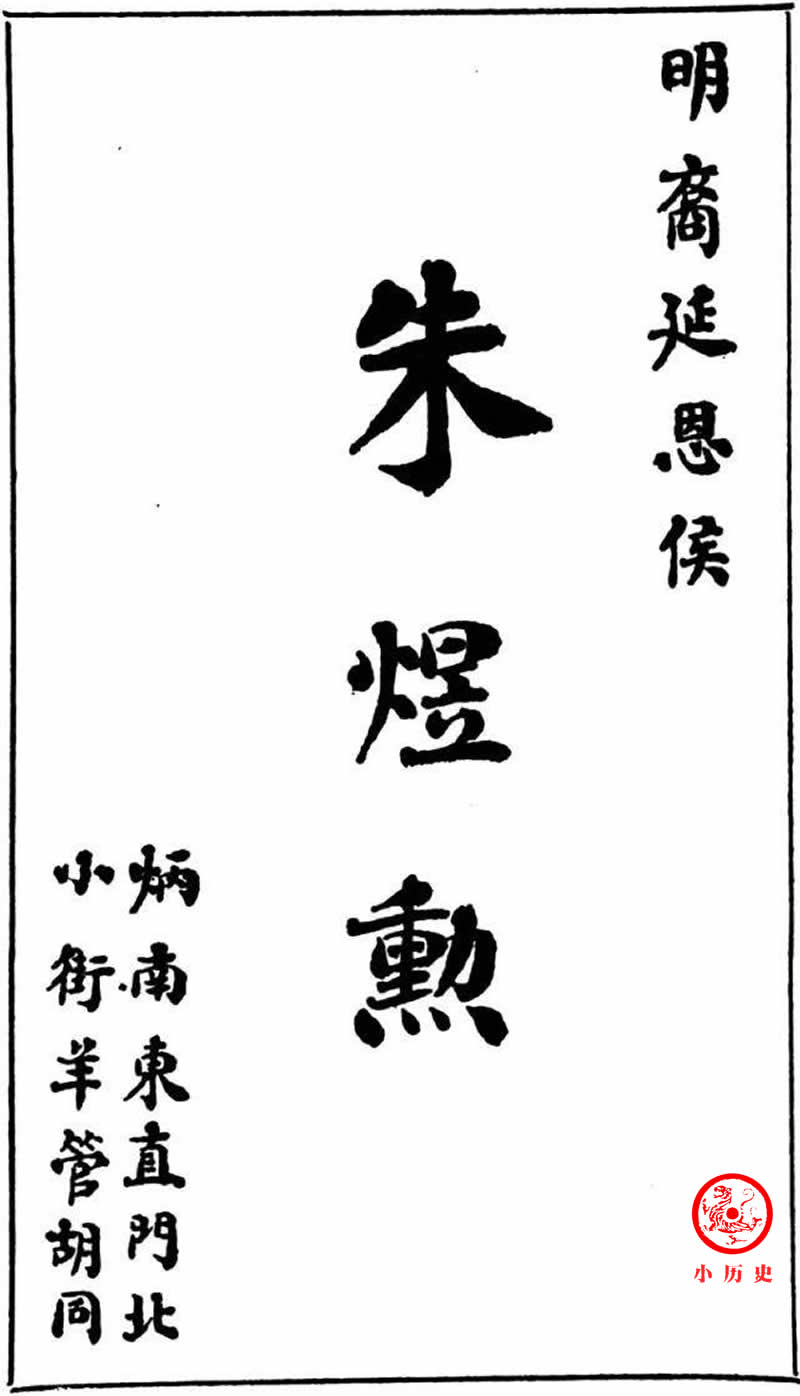 明裔延恩侯
朱煜勲
炳南東直門北
小街羊管胡同
小历史